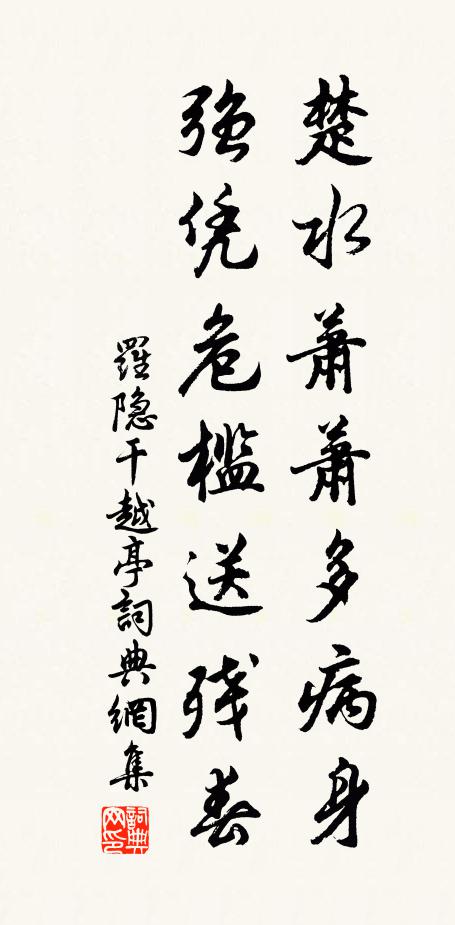 楚水萧萧多病身
强凭危槛送残春
羅隐干越亭詞典網集
詞典网印